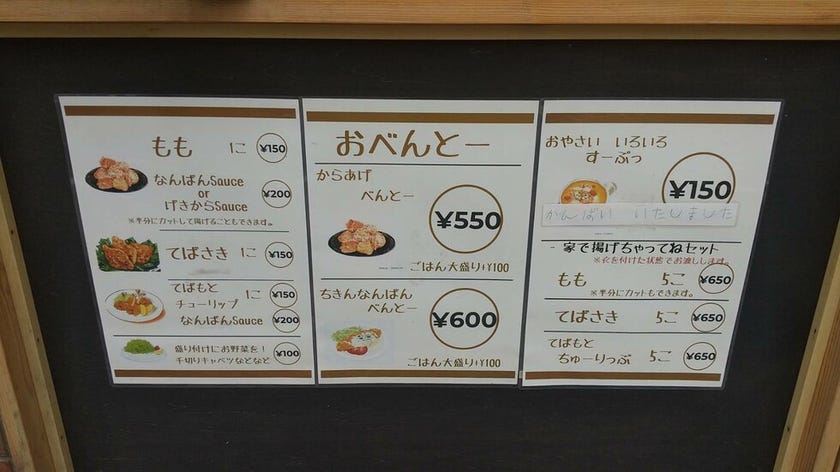 もも に ¥150
なんばんSauce
or
げきからSauce
¥200
※半分にカットして揚げることもできます。
てばさき に ¥150
てばもと
チューリップ に ¥150
なんばんSauce ¥200
盛り付けにお野菜を！
千切りキャベツなどなど
¥100
おべんとー
からあげ
べんとー
¥550
ごはん大盛り+¥100
ちきんなんばん
べんとー
¥600
ごはん大盛り+¥100
おやさい いろいろ
すーぷっ
¥150
かんばい いたしました
家で揚げちゃってねセット
※衣を付けた状態でお渡しします。
もも 5こ ¥650
※半分にカットもできます。
てばさき 5こ ¥650
てばもと
ちゅーりっぷ 5こ ¥650